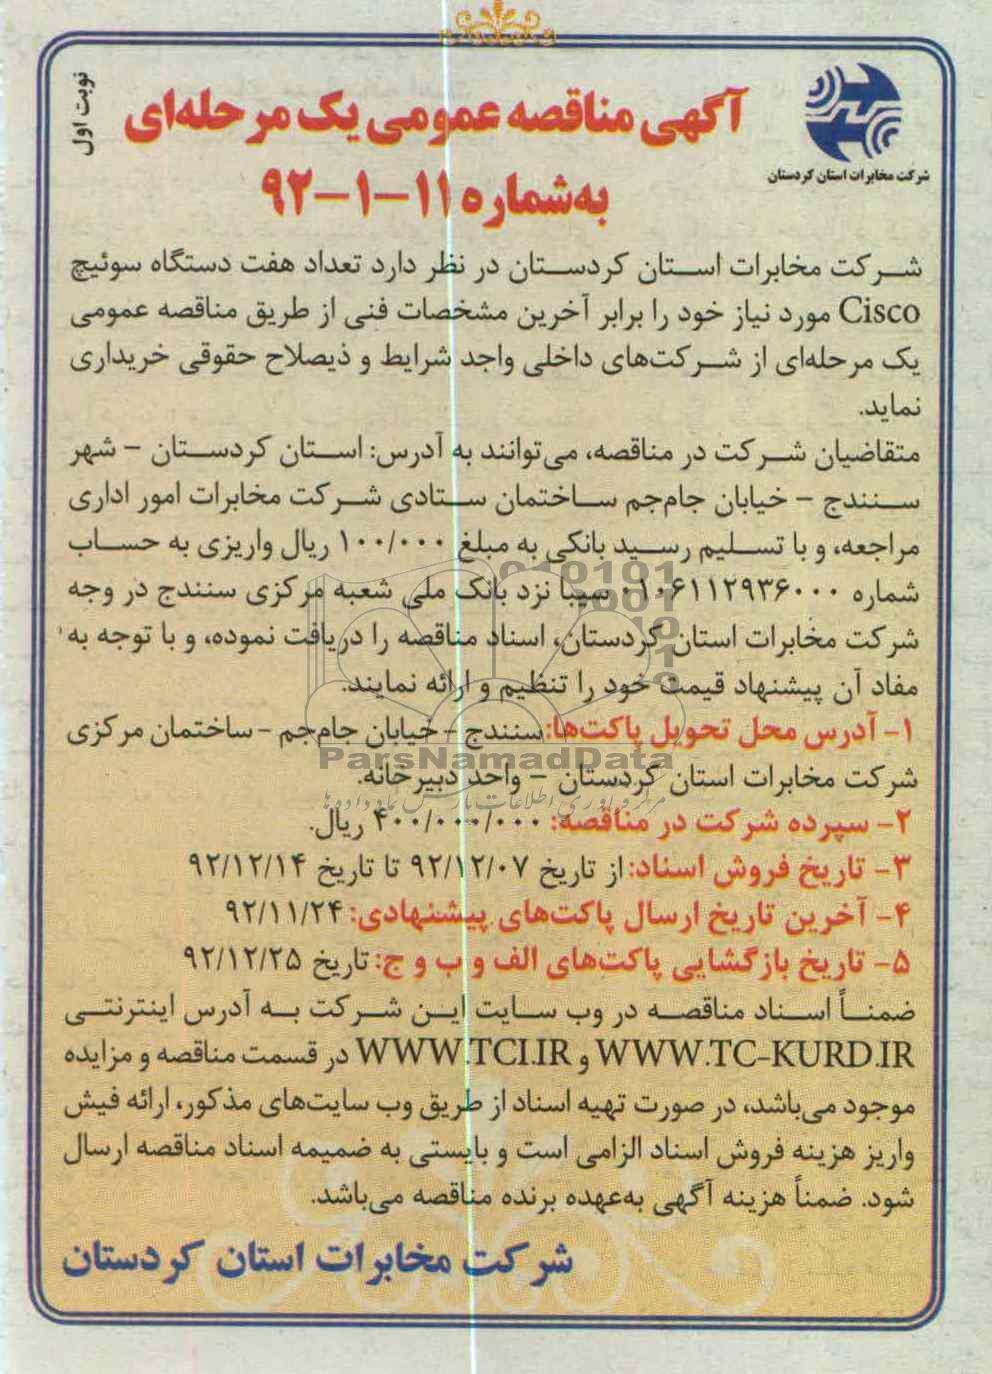 نوبت اول
شرکت مخابرات استان کردستان
آگهی مناقصه عمومی یک مرحله‌ای
به‌شماره ۱۱-۱-۹۲
شرکت مخابرات استان کردستان در نظر دارد تعداد هفت دستگاه سوئیچ
Cisco مورد نیاز خود را برابر آخرین مشخصات فنی از طریق مناقصه عمومی
یک مرحله‌ای از شرکت‌های داخلی واجد شرایط و ذیصلاح حقوقی خریداری
نماید.
متقاضیان شرکت در مناقصه، می‌توانند به آدرس: استان کردستان - شهر
سنندج - خیابان جام‌جم ساختمان ستادی شرکت مخابرات امور اداری
مراجعه، و با تسلیم رسید بانکی به مبلغ ۱۰۰/۰۰۰ ریال واریزی به حساب
شماره ۰۱۰۶۱۱۲۹۳۶۰۰۰ سیبا نزد بانک ملی شعبه مرکزی سنندج در وجه
شرکت مخابرات استان کردستان، اسناد مناقصه را دریافت نموده، و با توجه به
مفاد آن پیشنهاد قیمت خود را تنظیم و ارائه نمایند.
۱- آدرس محل تحویل پاکت‌ها: سنندج - خیابان جام‌جم - ساختمان مرکزی
ParsNamadData
شرکت مخابرات استان کردستان - واحد دبیرخانه.
۲- سپرده شرکت در مناقصه: ۴۰۰/۰۰۰/۰۰۰ ریال.
۳- تاریخ فروش اسناد: از تاریخ ۹۲/۱۲/۰۷ تا تاریخ ۹۲/۱۲/۱۴
۴- آخرین تاریخ ارسال پاکت‌های پیشنهادی: ۹۲/۱۱/۲۴
۵- تاریخ بازگشایی پاکت‌های الف و ب و ج: تاریخ ۹۲/۱۲/۲۵
ضمناً اسناد مناقصه در وب سایت این شرکت به آدرس اینترنتی
WWW.TC-KURD.IR و WWW.TCI.IR در قسمت مناقصه و مزایده
موجود می‌باشد، در صورت تهیه اسناد از طریق وب سایت‌های مذکور، ارائه فیش
واریز هزینه فروش اسناد الزامی است و بایستی به ضمیمه اسناد مناقصه ارسال
شود. ضمناً هزینه آگهی به‌عهده برنده مناقصه می‌باشد.
شرکت مخابرات استان کردستان